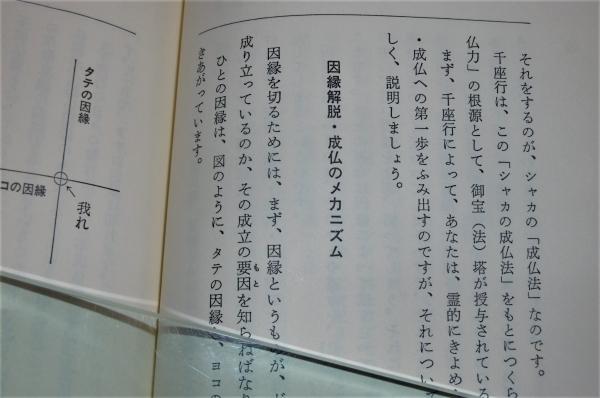 それをするのが、シャカの「成仏法」なのです。
千座行は、この「シャカの成仏法」をもとにつくら
仏力」の根源として、御宝（法）塔が授与されている
まず、千座行によって、あなたは、霊的にきよめ
・成仏への第一歩をふみ出すのですが、それについ
しく、説明しましょう。
因縁解脱・成仏のメカニズム
因縁を切るためには、まず、因縁というものが、ど
成り立っているのか、その成立の要因を知らねばなり
もと
ひとの因縁は、図のように、タテの因縁と、ヨコの
きあがっています。
タテの因縁
我れ
コの因縁